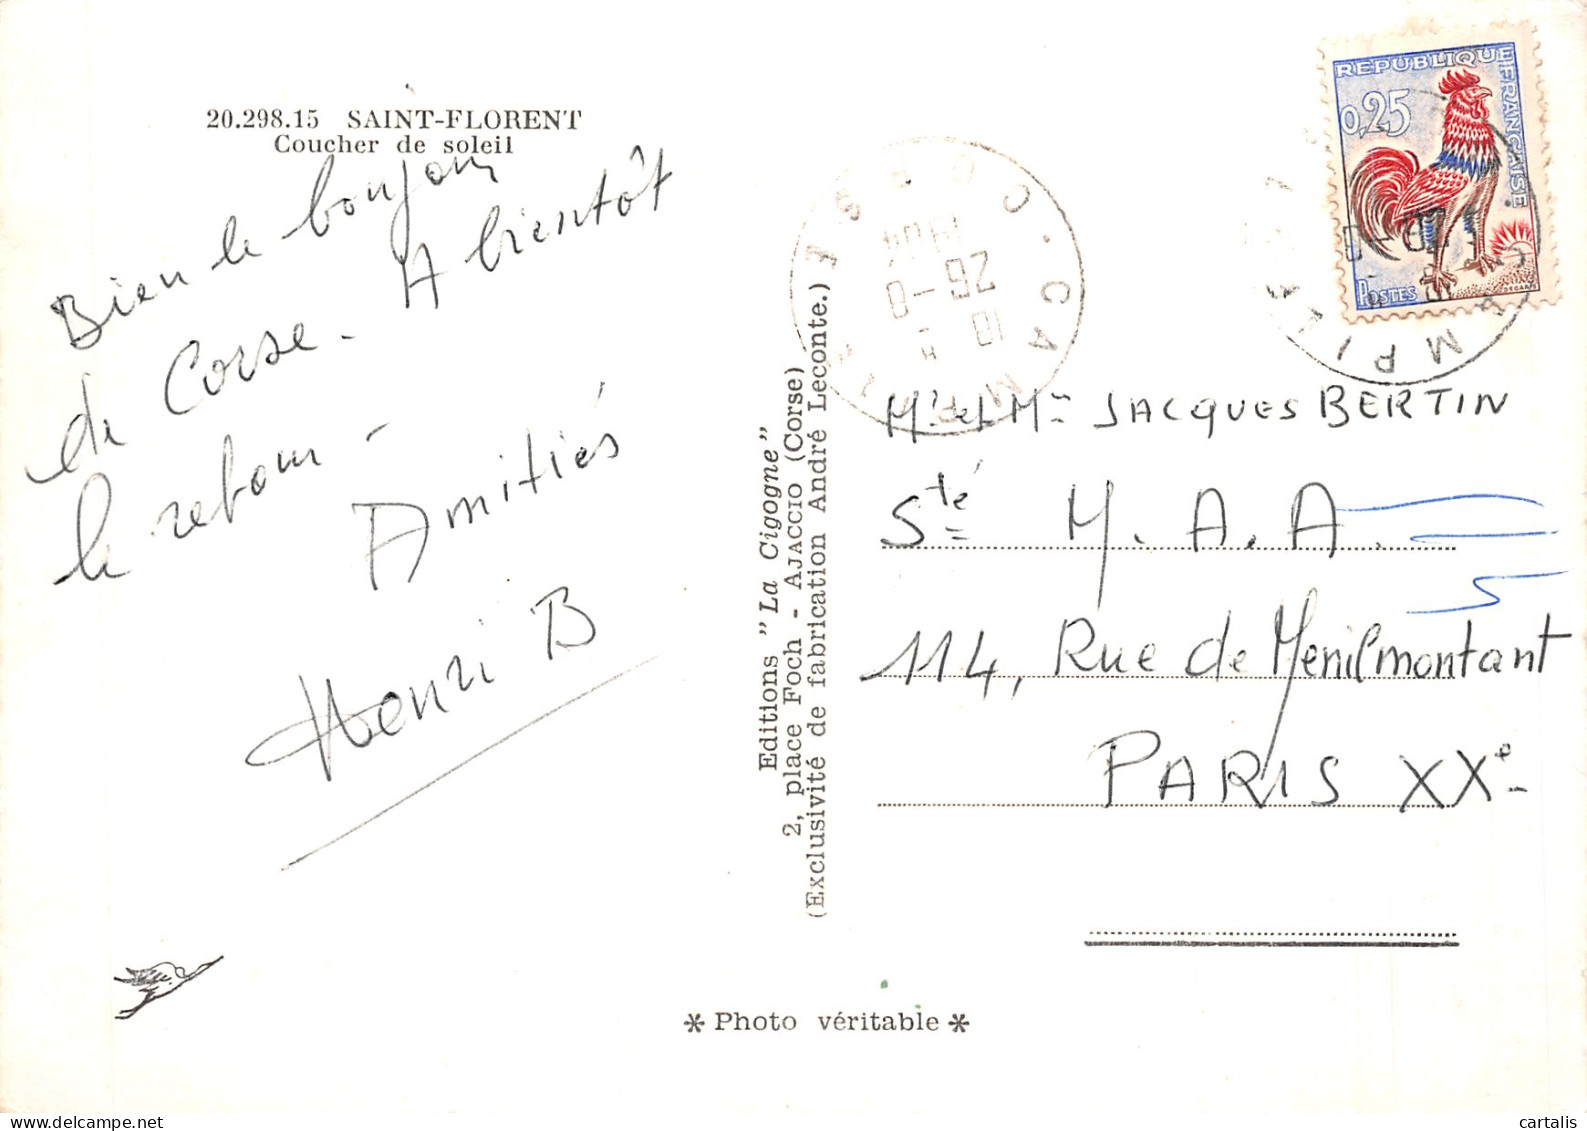 20.298.15 SAINT-FLORENT
Coucher de soleil
Bien le bonjour
de Corse - A bientôt
le retour -
Amitiés
Henri B
Editions "La Cigogne"
2, place Foch - AJACCIO (Corse)
(Exclusivité de fabrication André Leconte.)
CORSE
18 H
26-8
1964
REPUBLIQUE FRANÇAISE
0,25
POSTES
DECARIS
Mr et Mme JACQUES BERTIN
Sté M.A.A.
114, Rue de Menilmontant
PARIS XXe-
* Photo véritable *
cartalis